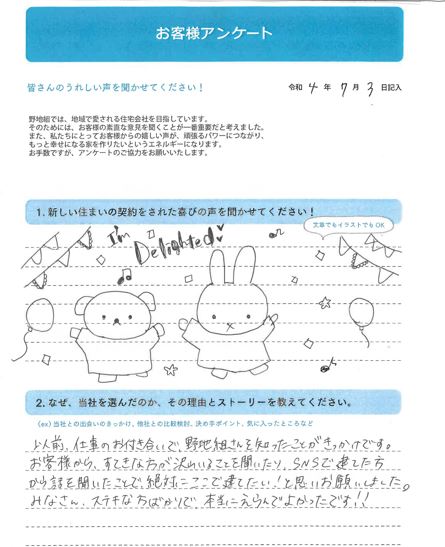 お客様アンケート
皆さんのうれしい声を聞かせてください！
令和 4 年 7 月 3 日記入
野地組では、地域で愛される住宅会社を目指しています。
そのためには、お客様の素直な意見を聞くことが一番重要だと考えました。
また、私たちにとってお客様からの嬉しい声が、頑張るパワーにつながり、
もっと幸せになる家を作りたいというエネルギーになります。
お手数ですが、アンケートのご協力をお願いいたします。
1. 新しい住まいの契約をされた喜びの声を聞かせてください！
文章でもイラストでもOK
I'm
Delighted
2. なぜ、当社を選んだのか、その理由とストーリーを教えてください。
（ex）当社との出会いのきっかけ、他社との比較検討、決め手ポイント、気に入ったところなど
以前、仕事のお付き合いで、野地組さんを知ったことがきっかけです。
お客様から、すてきな方が沢山いることを聞いたり、SNSで建てた方
から話を聞いたことで絶対にここで建てたい！と思いお願いしました。
みなさん、ステキな方ばかりで、本当にえらんでよかったです！！